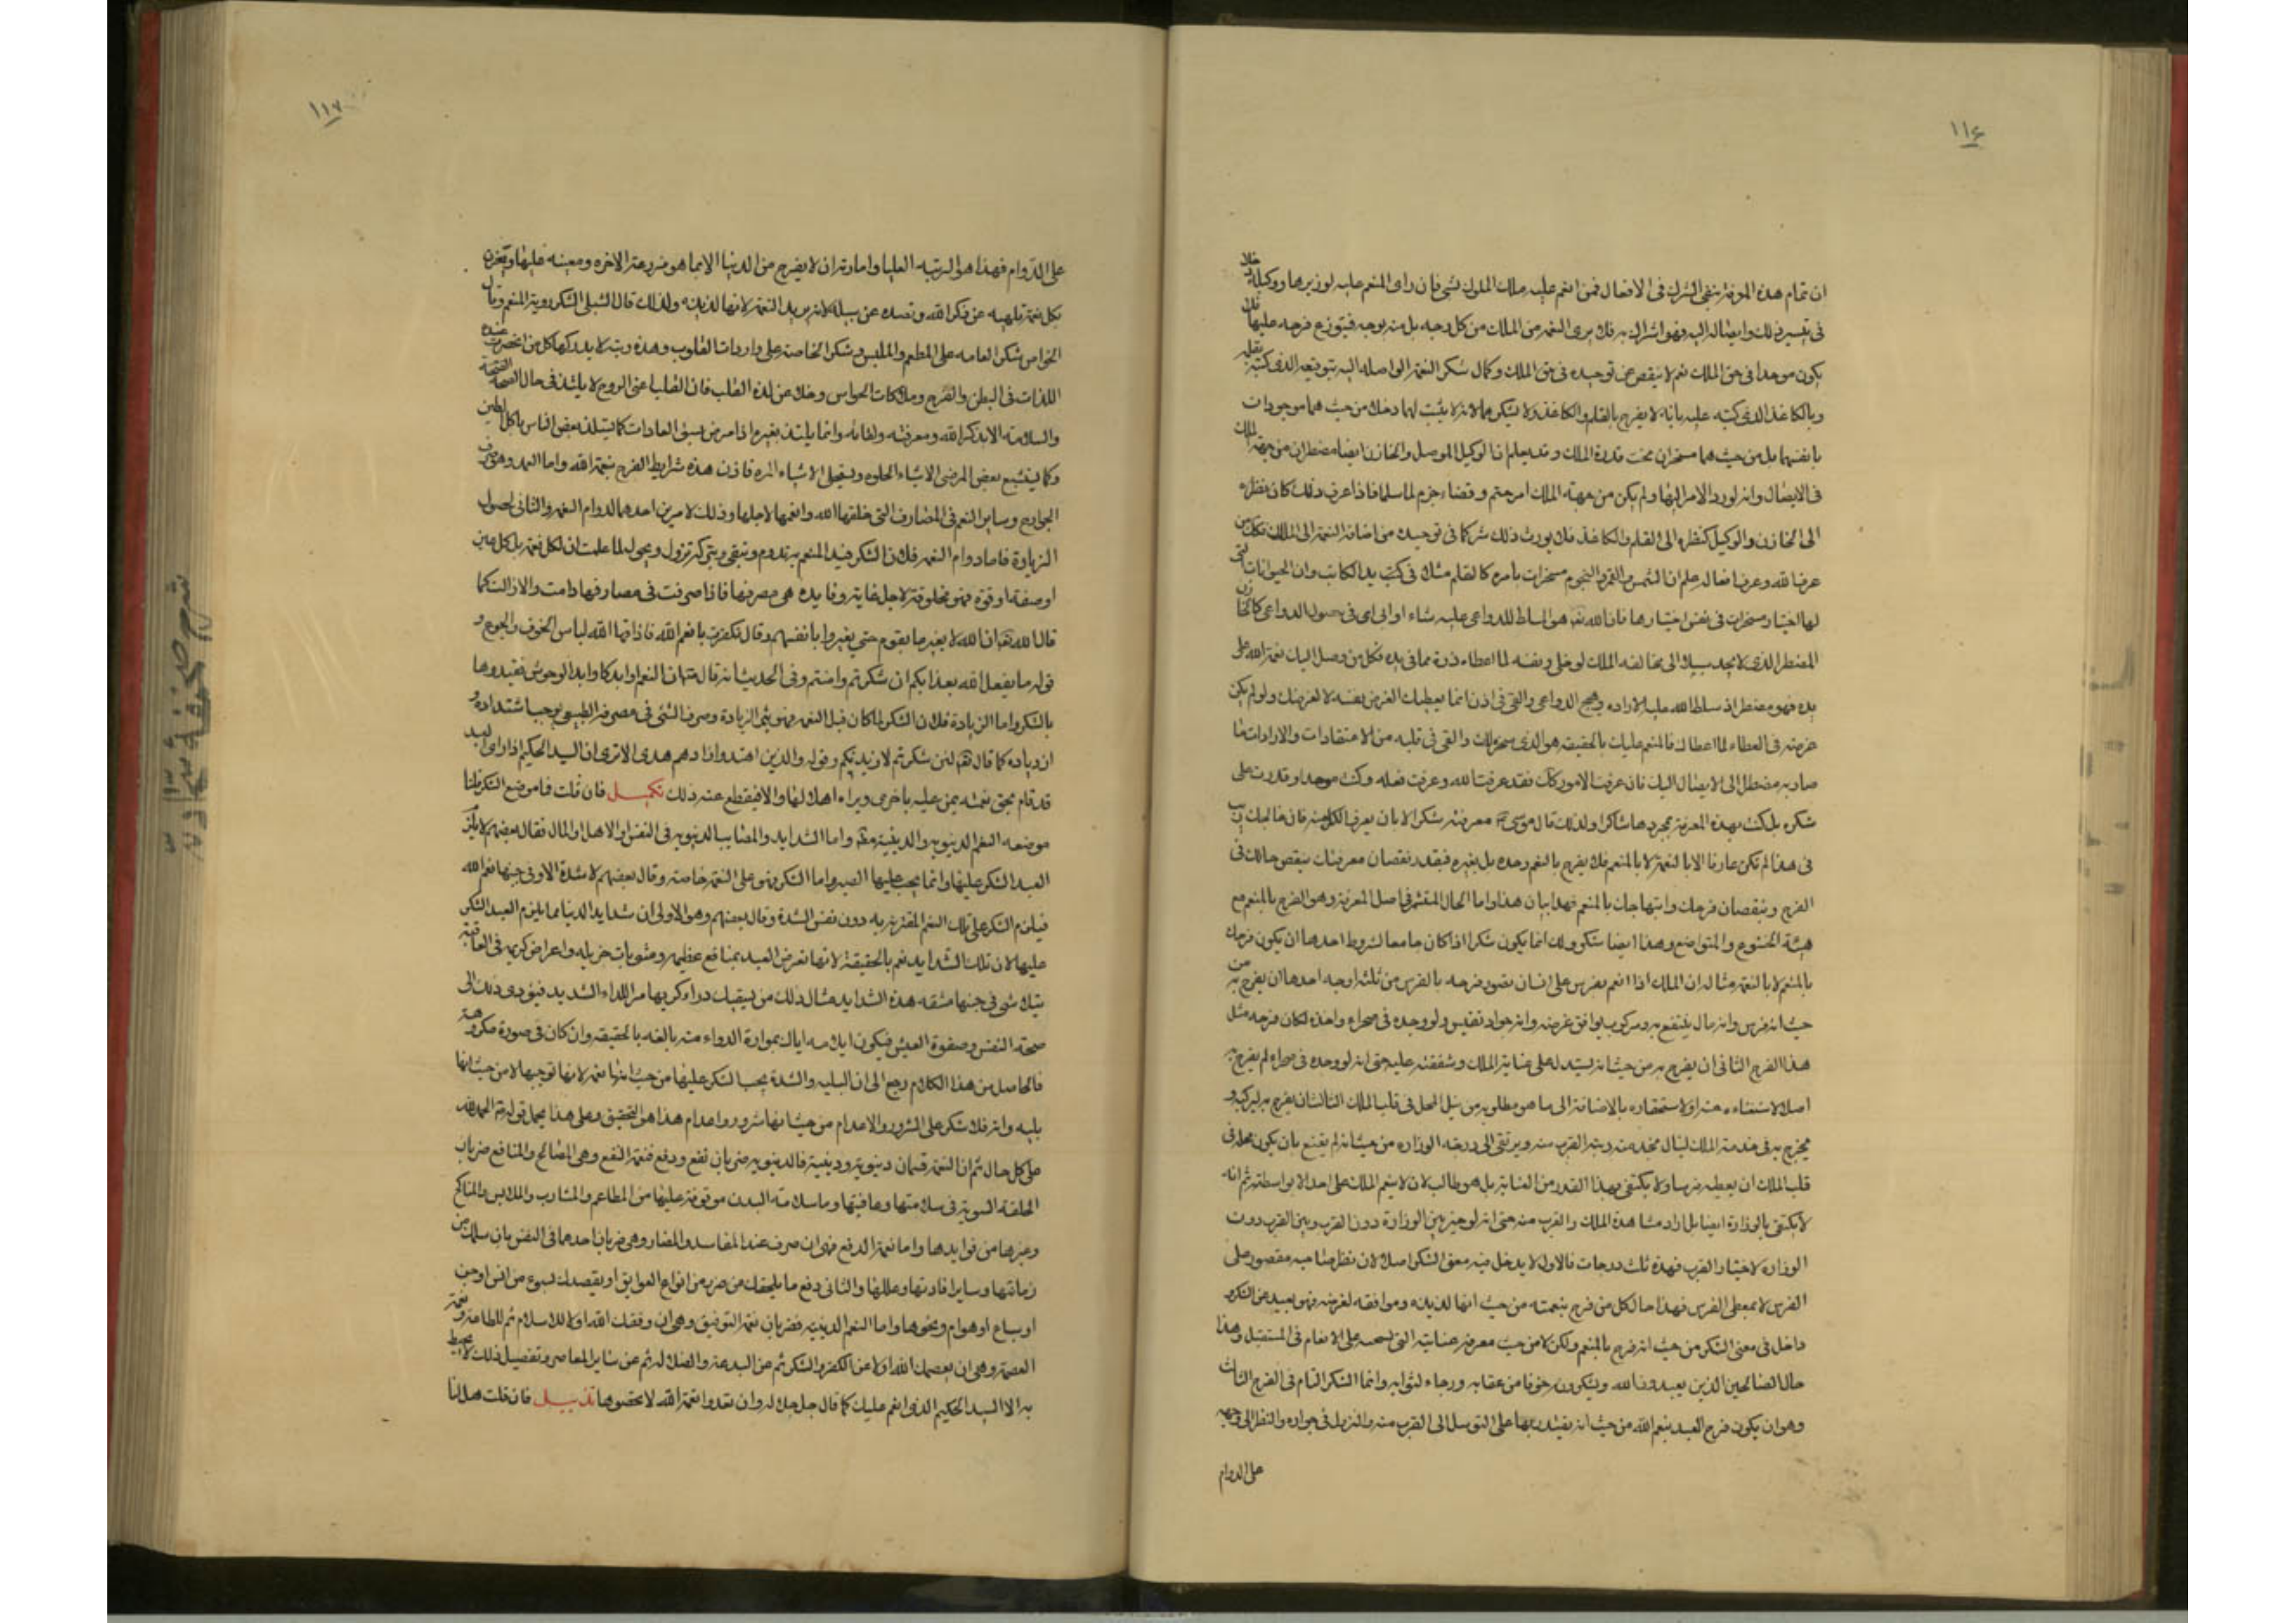 ١١٦
ان تمام هذه المعرفة ينفي الشرك في الافعال فمن انعم عليه ملك الملوك بشي فان راى المنعم عليه لوزيرها ووكيله دخلا
في تيسير ذلك وايصاله اليه فهو اشراك به فلا يرى النعمة من الملك من كل وجه بل منه بوجه فيتوزع فرحه عليها فلا
يكون موحدا في حق الملك نعم لا ينقص عن توحيده في حق الملك وكمال شكر النعمة الواصلة اليه بتوقيعه الذي كتبه بقلمه
وبالكاغذ الذي كتبه عليه بانه لا يفرح بالقلم والكاغذ ولا يشكرهما لانه لا يثبت لهما دخلا من حيث هما موجودان
بانفسهما بل من حيث هما مسخران تحت قدرة الملك وقد يعلم ان الوكيل الموصل والخازن ايضا مضطران من جهة الملك
في الايصال وانه لو رد الامر اليها ولم يكن من جهة الملك امر حتم وقضاء جزم لما سلما فاذا عرف ذلك كان نظره
الى الخازن والوكيل كنظره الى القلم والكاغذ فلا يورث ذلك شركا في توحيده من اضافة النعمة الى الملك فكل من
عرف الله وعرف افعاله علم ان الشمس والقمر والنجوم مسخرات بامره كالقلم مثلا في كتب يد الكاتب وان الحيوانات التي
لها اختيار مسخرات في نفس اختيارها فان الله تعه هو المسلط للدواعي عليه شاء او ابى اى في حصول الدواعي كالخازن
المضطر الذي لا يجد سبيلا الى مخالفة الملك لو خلى ونفسه لما اعطاه ذرة مما في يده فكل من وصل اليك نعمة الله على
يده فهو مضطر اذ سلط الله عليه الارادة وهيج الدواعي والقى في اذن انما يعطيك لغرض نفسه لا لغرضك ولو لم يكن
غرضه في العطاء لما اعطاك فالمنعم عليك بالحقيقة هو الذي سخره لك والقى في قلبه من الاعتقادات والارادات ما
صار به مضطرا الى الايصال اليك فان عرفت الامور كذلك فقد عرفت الله وعرفت فعله وكنت موحدا وقدرت على
شكره بل كنت بهذه المعرفة بمجردها شاكرا ولذلك قال موسى معرفته شكرا الا بان يعرف الكل منه فان خالجك ريب
في هذا لم تكن عارفا الا بالنعمة لا بالمنعم فلا يفرح بالمنعم وحده بل بغيره فبقدر نقصان معرفتك ينقص حالك في
الفرح وبنقصان فرحك وابتهاجك بالمنعم فهذا بيان هذا واما الحال المثمرة في اصل المعرفة وهو الفرح بالمنعم مع
هيئة الخشوع والتواضع وهذا ايضا شكر ولك انما يكون شكرا اذا كان جامعا لشروط احدها ان يكون فرحك
بالمنعم لا بالنعمة مثاله ان الملك اذا انعم بفرس على انسان يتصور فرحه بالفرس من ثلثة اوجه احدها ان يفرح به من
حيث انه فرس وانه مال ينتفع به ومركوب يوافق غرضه وانه جواد نفيس ولو وجده في صحراء واخذه لكان فرحه مثل
هذا الفرح الثاني ان يفرح به من حيث انه يستدل به على عناية الملك وشفقته عليه حتى انه لو وجده في صحراء لم يفرح به
اصلا لاستغناءه عنه او لاستحقاره بالاضافة الى ما هو مطلوبه من نيل المحل في قلب الملك الثالث ان يفرح به ليركبه و
يخرج به في خدمة الملك لينال بخدمته رتبة القرب منه ويرتقى الى درجة الوزارة من حيث انه لم يقنع بان يكون محله في
قلب الملك ان يعطيه فرسا ولا يكتفى بهذا القدر من العناية بل هو طالب لان لا ينعم الملك على احد الا بواسطته ثم انه
لا يكتفى بالوزارة ايضا بل اراد مشاهدة الملك والقرب منه حتى انه لو خير بين الوزارة دون القرب وبين القرب دون
الوزارة لاختار القرب فهذه ثلث درجات فالاول لا يدخل فيه معنى الشكر اصلا لان نظر صاحبه مقصور على
الفرس لا بمعطى الفرس فهذا حال كل من فرح بنعمته من حيث انها لذيذة وموافقة لغرضه فهو بعيد عن الشكر
داخل في معنى الشكر من حيث انه فرح بالمنعم ولكن لا من حيث معرفة عنايته التي تحثه على الانعام في المستقبل وهذا
حال الصالحين الذين يعبدون الله ويشكرون خوفا من عقابه ورجاء لثوابه وانما الشكر التام في الفرح الثالث
وهو ان يكون فرح العبد بنعم الله من حيث انه يقتدر بها على التوسل الى القرب منه والنزول في جواره والنظر الى وجهه
على الدوام
١١٧
على الدوام فهذا هو الرتبة العليا وامارته ان لا يفرح من الدنيا الا بما هو مزرعة الاخرة ومعينه عليها ويحزن
بكل نعمة تلهيه عن ذكر الله وتصده عن سبيله لانه يريد النعمة لا لانها لذيذة ولذلك قال الشبلي الشكر روية المنعم وقال
الخواص شكر العامة على المطعم والملبس وشكر الخاصة على واردات القلوب وهذه رتبة لا يدركها كل من انحصرت عنده
اللذات في البطن والفرج ومدركات الحواس وخلا عن لذة القلب فان القلب اعني الروح لا يلتذ في حال الصحة
والسلامة الا بذكر الله ومعرفته ولقائه وانما يلتذ بغيره اذا مرض بسوء العادات كما يستلذ بعض الناس باكل الطين
وكما يستبشع بعض المرضى الاشياء الحلوة ويستحلى الاشياء المرة فاذن هذه شرايط الفرح بنعمة الله واما العمد وهو صرف
الجوارح وساير النعم في المصارف التي خلقها الله وانعمها لاجلها وذلك لامرين احدهما لدوام النعمة والثاني لحصول
الزيادة فاما دوام النعمة فلان الشكر قيد المنعم به تدوم وتبقى وبتركه تزول وتحول لما علمت ان لكل نعمة بل كل عين
او صفة او قوة فهو مخلوقة لاجل غاية وفايدة هي مصرفها فاذا صرفت في مصارفها دامت والا زالت كما
قال الله تعه ان الله لا يغير ما بقوم حتى يغيروا ما بانفسهم وقال فكفرت بانعم الله فاذاقها الله لباس الخوف والجوع و
قوله ما يفعل الله بعذابكم ان شكرتم وامنتم وفي الحديث انه قال ان للنعم اوابد كاوابد الوحوش فقيدوها
بالشكر واما الزيادة فلان الشكر لما كان قيد النعمة فهو يثمر الزيادة وصرف الشئ في مصرفه الطبيعي يوجب اشتداده و
ازدياده كما قال تعه لئن شكرتم لازيدنكم وقوله والذين اهتدوا زادهم هدى الا ترى ان السيد الحكيم اذا راى العبد
قد قام بحق نعمته يمن عليه باخرى ويراه اهلا لها والا فيقطع عنه ذلك تكميل فان قلت فما موضع الشكر قلنا
موضعه النعم الدنيوية والدينية واما الشدايد والمصايب الدنيوية في النفس او الاهل او المال فقال بعضهم لا يلزم
العبد الشكر عليها وانما يجب عليها الصبر واما الشكر فهو على النعمة خاصة وقال بعضهم لا شدة الا وفي جنبها نعم الله
فيلزم الشكر على تلك النعم المقترنة به دون نفس الشدة وقال بعضهم وهو الاولى ان شدايد الدنيا مما يلزم العبد الشكر
عليها لان تلك الشدايد نعم بالحقيقة لانها تعرض العبد بمنافع عظيمة ومثوبات جزيلة واعراض كريمة في العاقبة
يتلاشى في جنبها مشقة هذه الشدايد مثال ذلك من يسقيك دواء كريها مرا للداء الشديد فيؤدى ذلك الى
صحة النفس وصفوة العيش فيكون ايلامه اياك بمرارة الدواء منة بالغة بالحقيقة وان كان في صورة مكروهة
فالحاصل من هذا الكلام رجع الى ان البلية والشدة يجب الشكر عليها من حيث انها نعمة لانها توجبها لا من حيث انها
بلية وانه فلا شكر على الشرور والاعدام من حيث انها شرور واعدام هذا هو التحقيق وعلى هذا يحمل قوله الحمد لله
على كل حال ثم ان النعمة قسمان دنيوية ودينية فالدنيوية ضربان نفع ودفع فنعمة النفع وهي المصالح والمنافع ضربان
الخلقة السوية في سلامتها وعافيتها وما سلامة البدن موقوفة عليها من المطاعم والمشارب والملابس والمناكح
وغيرها من فوايدها واما نعمة الدفع فهي ان صرف عند المفاسد والمضار وهي ضربان احدهما في النفس بان سلمك من
زمانتها وساير افاتها وعللها والثاني دفع ما يلحقك من ضرر من انواع العوايق او يقصدك بسوء من انس او جن
او سباع او هوام ونحوها واما النعم الدينية فضربان نعمة التوفيق وهي ان وفقك الله اولا للاسلام ثم للطاعة ونعمة
العصمة وهي ان يعصمك الله اولا عن الكفر والشرك ثم عن البدعة والضلالة ثم عن ساير المعاصي وتفصيل ذلك لا يحيط
به الا السيد الحكيم الذي انعم عليك كما قال جل جلاله وان تعدوا نعمة الله لا تحصوها تذييل فان قلت هل لنا